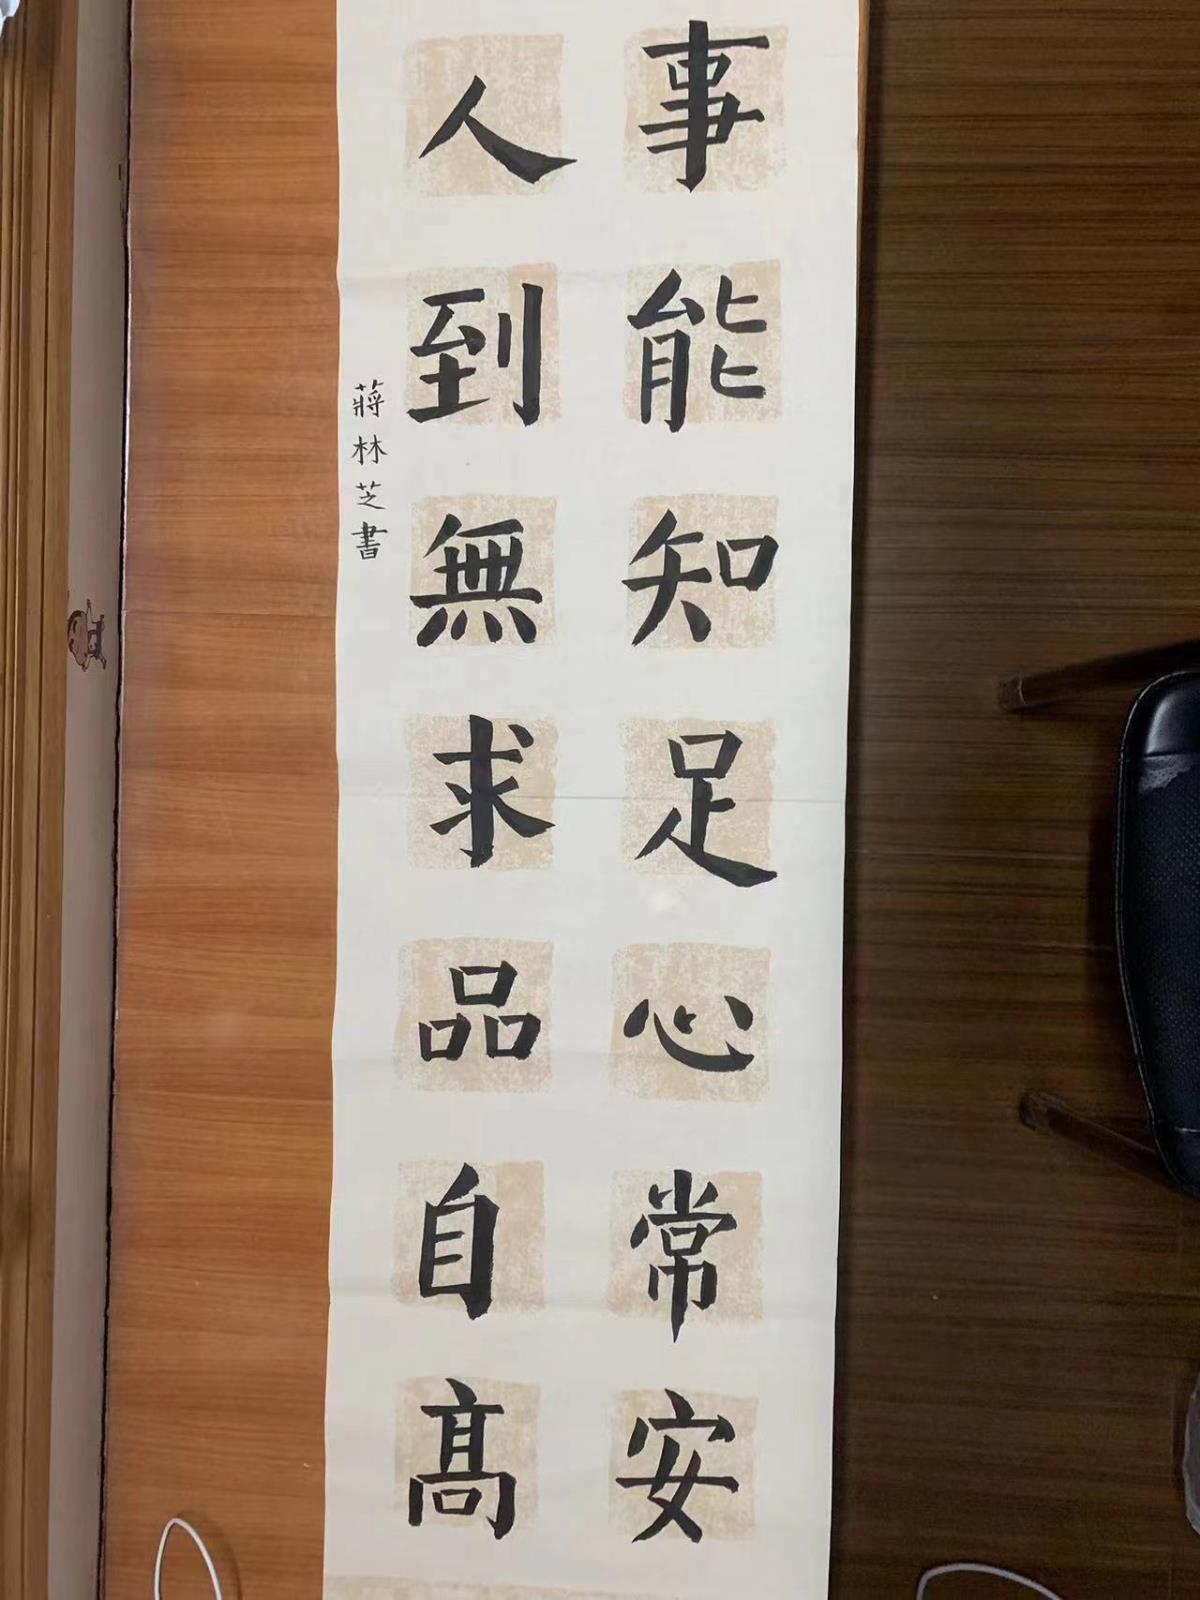 事能知足心常安
人到無求品自高
蔣林芝書